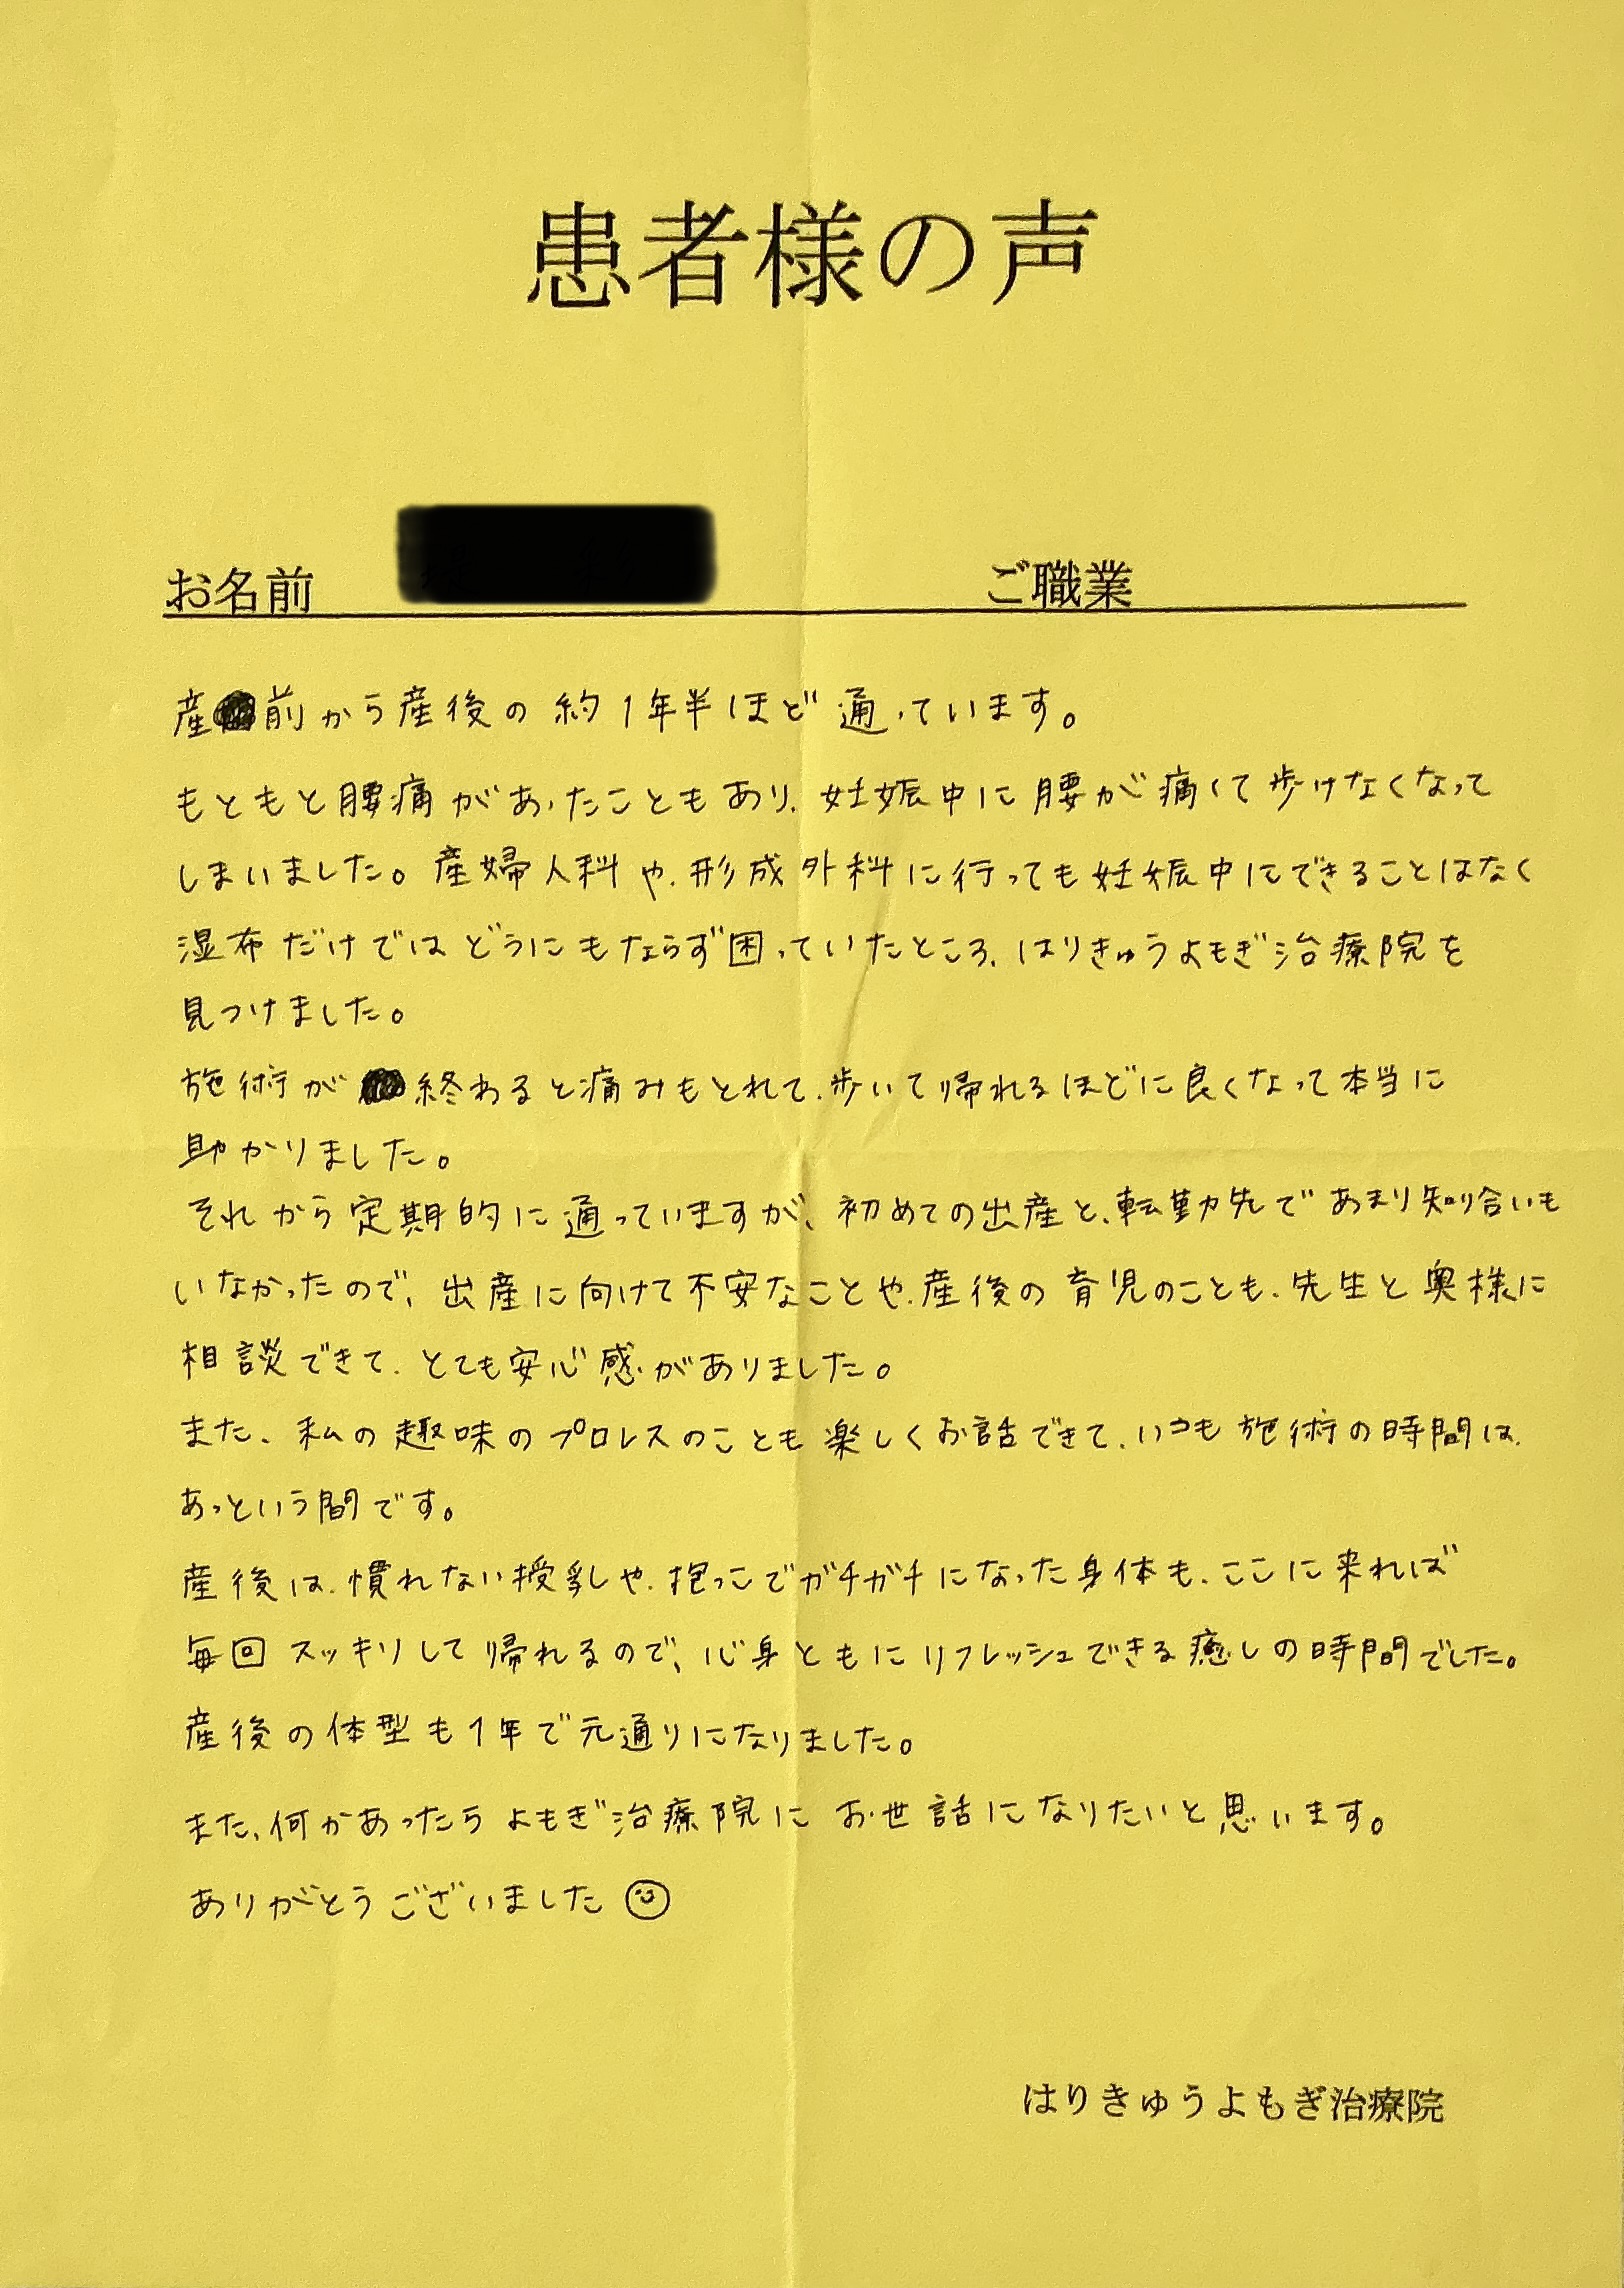 患者様の声
お名前 ご職業
産前から産後の約1年半ほど通っています。
もともと腰痛があったこともあり、妊娠中に腰が痛くて歩けなくなって
しまいました。産婦人科や、形成外科に行っても妊娠中にできることはなく
湿布だけではどうにもならず困っていたところ、はりきゅうよもぎ治療院を
見つけました。
施術が終わると痛みもとれて、歩いて帰れるほどに良くなって本当に
助かりました。
それから定期的に通っていますが、初めての出産と、転勤先であまり知り合いも
いなかったので、出産に向けて不安なことや、産後の育児のことも、先生と奥様に
相談できて、とても安心感がありました。
また、私の趣味のプロレスのことも楽しくお話できて、いつも施術の時間は、
あっという間です。
産後は、慣れない授乳や、抱っこでガチガチになった身体も、ここに来れば
毎回スッキリして帰れるので、心身ともにリフレッシュできる癒しの時間でした。
産後の体型も1年で元通りになりました。
また、何かあったらよもぎ治療院にお世話になりたいと思います。
ありがとうございました☺
はりきゅうよもぎ治療院